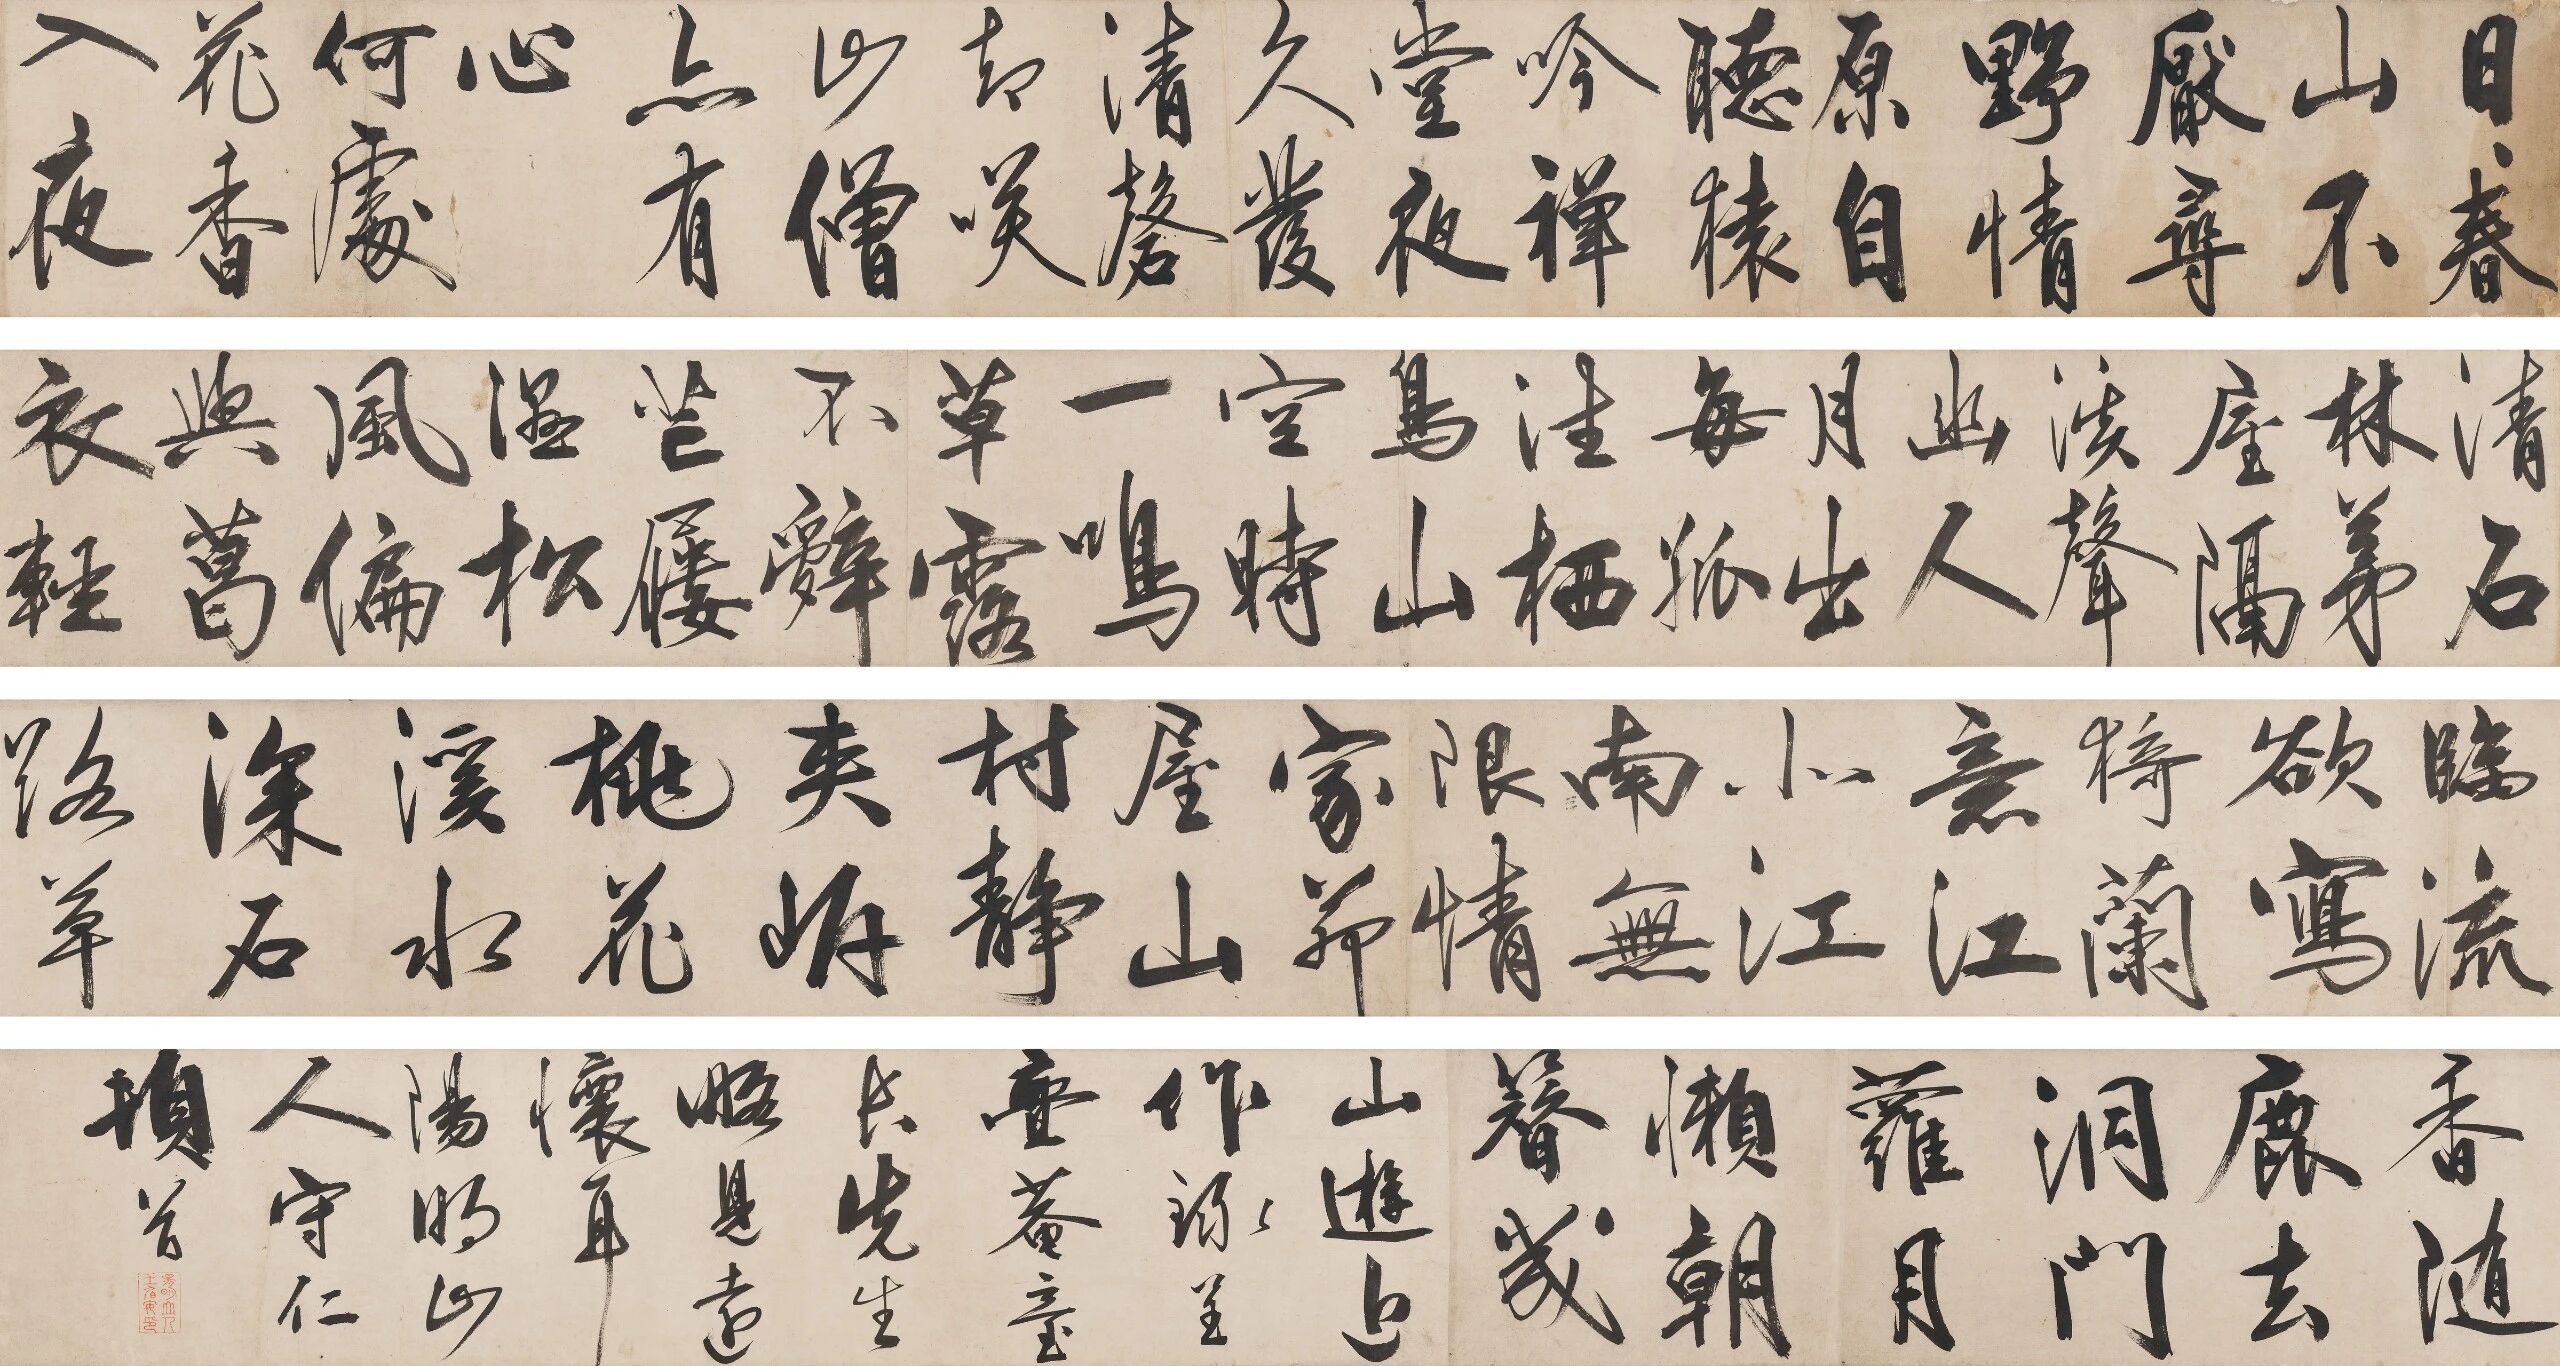 日、春
山不
厭尋
野情
原自
聽猿
吟禪
堂夜
久發
清磬
却咲
山僧
亦有
心
何處
花香
入夜
清石
林茅
屋隔
溪聲
幽人
月出
每孤
往栖
鳥山
空時
一鳴
草露
不辭
芒屨
濕松
風偏
與葛
衣輕
臨流
欲寫
猗蘭
意江
北江
南無
限情
家茆
屋山
村靜
夾岍
桃花
溪水
深石
路草
香随
鹿去
洞門
蘿月
懶朝
簪
山遊近
作録呈
菴臺
長先生
略見遠
懷耳
陽明山
人守仁
頓首